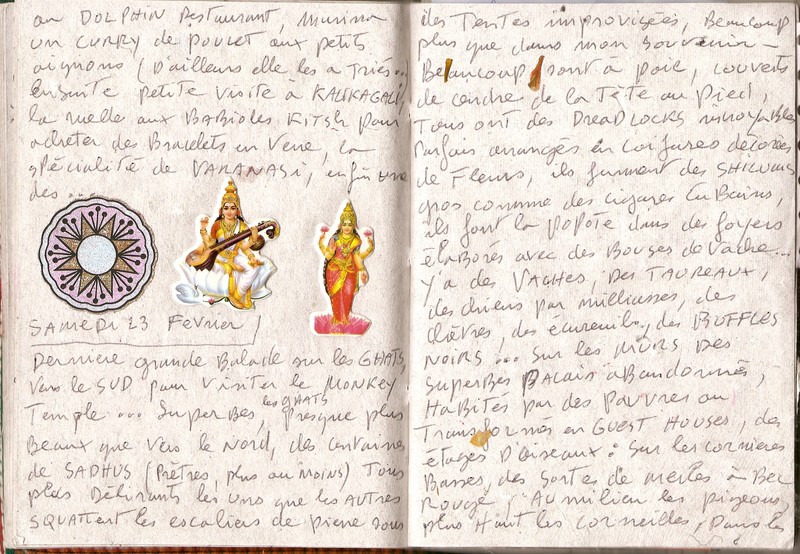 au DOLPHIN Restaurant, Murima
un CURRY de POULET aux petits
oignons (D'ailleurs elle les a TRIÉS...
Ensuite petite visite à KALIKAGALI,
la ruelle aux BABIOLES KITSH pour
acheter des Bracelets en Verre, la
spécialité de VARANASI, enfin une
des ...
SAMEDI 23 Fevrier /
Derniere grande Balade sur les GHATS,
vers le SUD pour visiter le MONKEY
Temple ... SuperBes, les GHATS Presque plus
Beaux que vers le Nord, des centaines
de SADHUS (PRÊTRES, plus ou MOINS) TOUS
plus Délirants les uns que les AUTRES
SQUATTENT les escaliers de pierre sous
des TENTES improvisées, Beaucoup
plus que dans mon souvenir -
Beaucoup sont à poil, couverts
de cendre de la TÊTE au Pied,
Tous ont des DreaDLOCKS incroyables
Parfois arrangés en coiffures décorées
de Fleurs, ils fument des SHILUMS
gros comme des cigares CuBains,
ils font la POPOTE dans des foyers
élaborés avec des Bouses de Vache...
Y'a des VACHES, Des TAUREAUX
des chiens par milliasses, des
chèvres, des écureuils, des BUFFLES
NOIRS ... Sur les MURS Des
SuperBes PALAIS aBandonnés,
HaBités par des pauvres ou
Transformés en GUEST HOUSES, des
étages D'oiseaux : Sur les cornières
Basses, des sortes de merles à Bec
Rouge, Au milieu les pigeons,
plus Haut les corneilles, Dans les